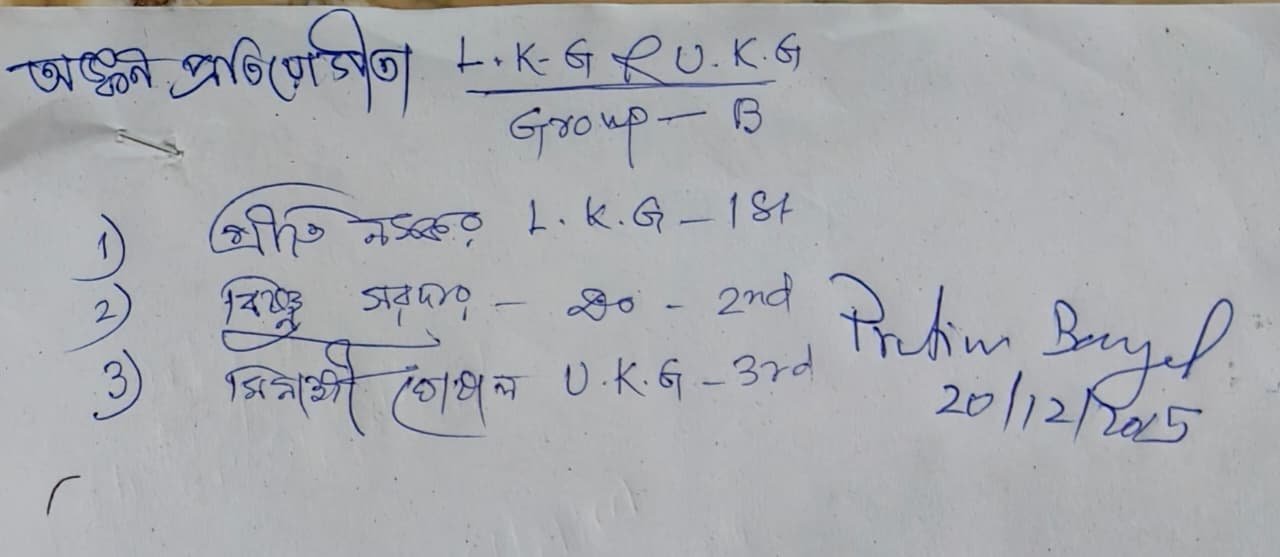 অঙ্কন প্রতিযোগীতা L.K-G & U.K.G
Group - B
1) প্রীতি নস্কর L.K.G - 1st
2) বিষ্ণু সরদার - Do - 2nd
3) মিনাক্ষী ঘোষাল U.K.G - 3rd
Pretim
20/12/2025